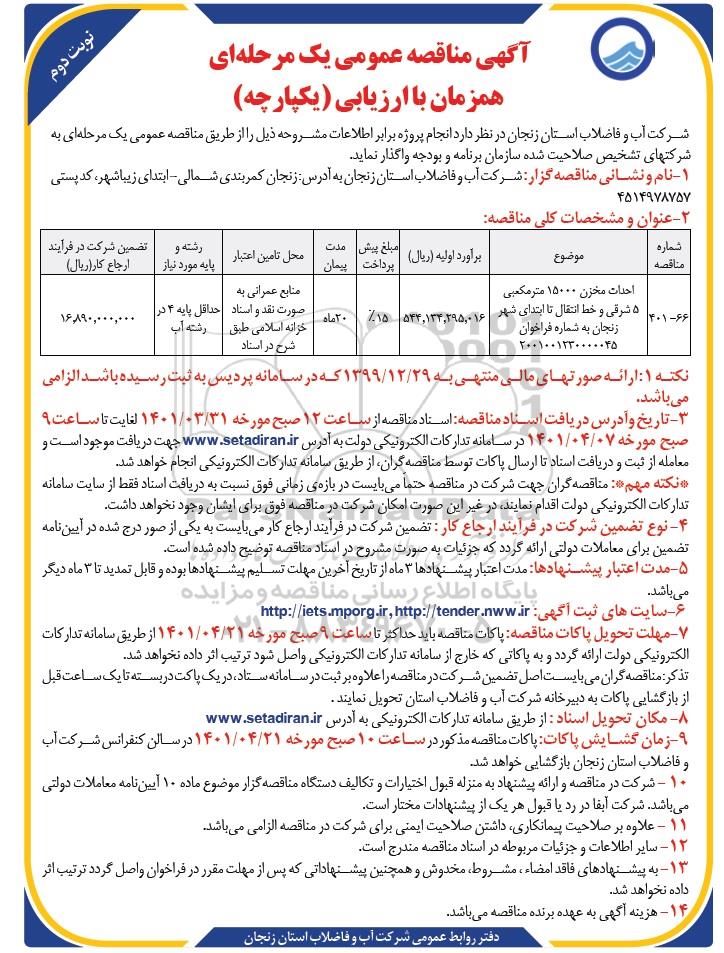 نوبت دوم
آگهی مناقصه عمومی یک مرحله‌ای
همزمان با ارزیابی (یکپارچه)
شرکت آب و فاضلاب استان زنجان در نظر دارد انجام پروژه برابر اطلاعات مشروحه ذیل را از طریق مناقصه عمومی یک مرحله‌ای به
شرکتهای تشخیص صلاحیت شده سازمان برنامه و بودجه واگذار نماید.
۱-نام و نشانی مناقصه گزار: شرکت آب و فاضلاب استان زنجان به آدرس: زنجان کمربندی شمالی-ابتدای زیباشهر، کد پستی
۴۵۱۴۹۷۸۷۵۷
۲-عنوان و مشخصات کلی مناقصه:
شماره مناقصه | موضوع | برآورد اولیه (ریال) | مبلغ پیش پرداخت | مدت پیمان | محل تامین اعتبار | رشته و پایه مورد نیاز | تضمین شرکت در فرآیند ارجاع کار(ریال)
۶۶-۴۰۱ | احداث مخزن ۱۵۰۰۰ مترمکعبی ۵ شرقی و خط انتقال تا ابتدای شهر زنجان به شماره فراخوان ۲۰۰۱۰۰۱۲۳۰۰۰۰۰۴۵ | ۵۴۴,۱۳۴,۲۹۵,۰۱۶ | ۱۵٪ | ۲۰ماه | منابع عمرانی به صورت نقد و اسناد خزانه اسلامی طبق شرح در اسناد | حداقل پایه ۴ در رشته آب | ۱۶,۸۹۰,۰۰۰,۰۰۰
نکته ۱: ارائه صورتهای مالی منتهی به ۱۳۹۹/۱۲/۲۹ که در سامانه پردیس به ثبت رسیده باشد الزامی
می‌باشد.
۳-تاریخ و آدرس دریافت اسناد مناقصه: اسناد مناقصه از ساعت ۱۲ صبح مورخه ۱۴۰۱/۰۳/۳۱ لغایت تا ساعت ۹
صبح مورخه ۱۴۰۱/۰۴/۰۷ در سامانه تدارکات الکترونیکی دولت به آدرس www.setadiran.ir جهت دریافت موجود است و
معامله از ثبت و دریافت اسناد تا ارسال پاکات توسط مناقصه‌گران، از طریق سامانه تدارکات الکترونیکی انجام خواهد شد.
*نکته مهم*: مناقصه‌گران جهت شرکت در مناقصه حتماً می‌بایست در بازه‌ی زمانی فوق نسبت به دریافت اسناد فقط از سایت سامانه
تدارکات الکترونیکی دولت اقدام نمایند، در غیر این صورت امکان شرکت در مناقصه فوق برای ایشان وجود نخواهد داشت.
۴- نوع تضمین شرکت در فرآیند ارجاع کار : تضمین شرکت در فرآیند ارجاع کار می‌بایست به یکی از صور درج شده در آیین‌نامه
تضمین برای معاملات دولتی ارائه گردد که جزئیات به صورت مشروح در اسناد مناقصه توضیح داده شده است.
۵-مدت اعتبار پیشنهادها: مدت اعتبار پیشنهادها ۳ ماه از تاریخ آخرین مهلت تسلیم پیشنهادها بوده و قابل تمدید تا ۳ ماه دیگر
می‌باشد.
۶-سایت های ثبت آگهی: http://iets.mporg.ir, http://tender.nww.ir
۷-مهلت تحویل پاکات مناقصه: پاکات مناقصه باید حداکثر تا ساعت ۹ صبح مورخه ۱۴۰۱/۰۴/۲۱ از طریق سامانه تدارکات
الکترونیکی دولت ارائه گردد و به پاکاتی که خارج از سامانه تدارکات الکترونیکی واصل شود ترتیب اثر داده نخواهد شد.
تذکر: مناقصه گران می‌بایست اصل تضمین شرکت در مناقصه را علاوه بر ثبت در سامانه ستاد، در یک پاکت دربسته تا یک ساعت قبل
از بازگشایی پاکات به دبیرخانه شرکت آب و فاضلاب استان تحویل نمایند .
۸- مکان تحویل اسناد : از طریق سامانه تدارکات الکترونیکی به آدرس www.setadiran.ir
۹-زمان گشایش پاکات: پاکات مناقصه مذکور در ساعت ۱۰ صبح مورخه ۱۴۰۱/۰۴/۲۱ در سالن کنفرانس شرکت آب
و فاضلاب استان زنجان بازگشایی خواهد شد.
۱۰ - شرکت در مناقصه و ارائه پیشنهاد به منزله قبول اختیارات و تکالیف دستگاه مناقصه‌گزار موضوع ماده ۱۰ آیین‌نامه معاملات دولتی
می‌باشد. شرکت آبفا در رد یا قبول هر یک از پیشنهادات مختار است.
۱۱ - علاوه بر صلاحیت پیمانکاری، داشتن صلاحیت ایمنی برای شرکت در مناقصه الزامی می‌باشد.
۱۲- سایر اطلاعات و جزئیات مربوطه در اسناد مناقصه مندرج است.
۱۳- به پیشنهادهای فاقد امضاء ، مشروط، مخدوش و همچنین پیشنهاداتی که پس از مهلت مقرر در فراخوان واصل گردد ترتیب اثر
داده نخواهد شد.
۱۴- هزینه آگهی به عهده برنده مناقصه می‌باشد.
دفتر روابط عمومی شرکت آب و فاضلاب استان زنجان
پایگاه اطلاع رسانی مناقصه و مزایده